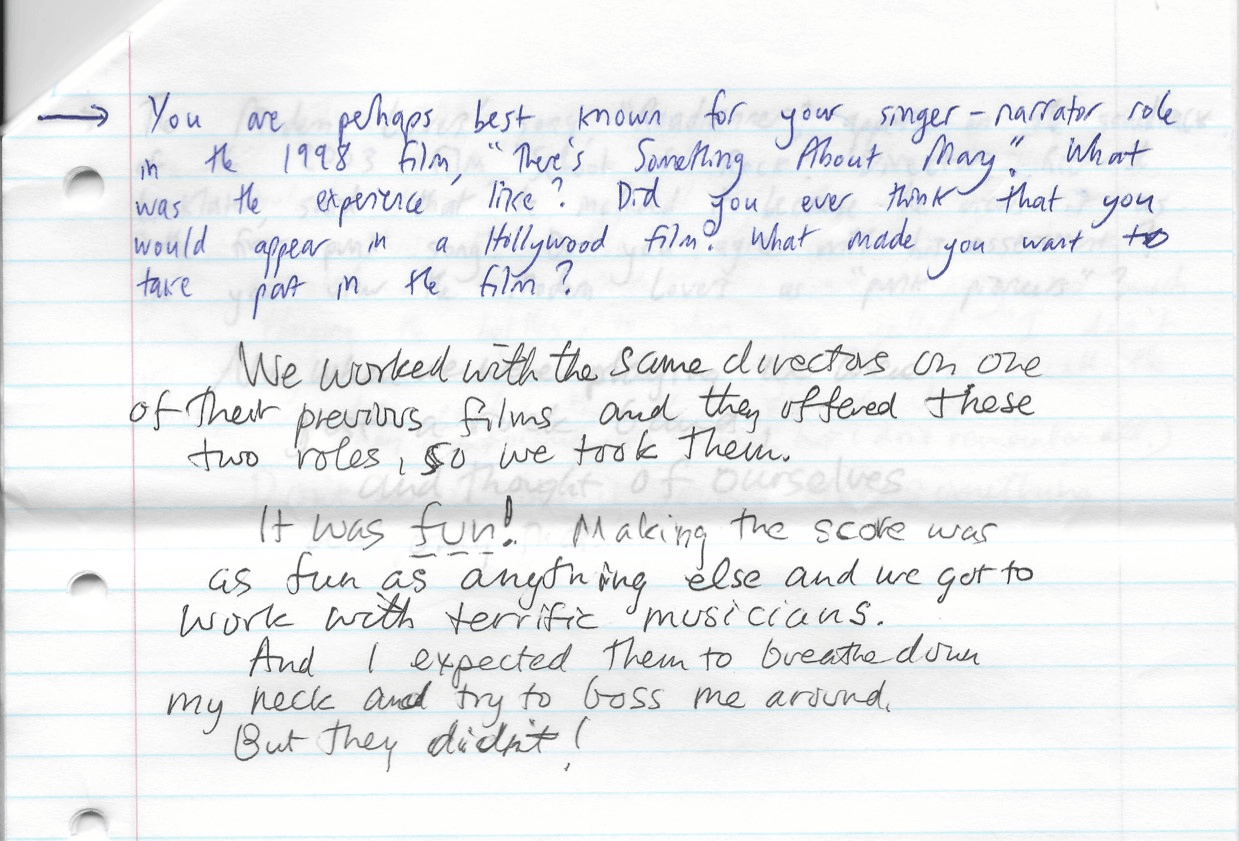 → You are perhaps best known for your singer-narrator role
in the 1998 film, "There's Something About Mary." What
was the experience like? Did you ever think that you
would appear in a Hollywood film? What made you want to
take part in the film?
We worked with the same directors on one
of their previous films and they offered these
two roles, so we took them.
It was fun! Making the score was
as fun as anything else and we got to
work with terrific musicians.
And I expected them to breathe down
my neck and try to boss me around.
But they didn't!